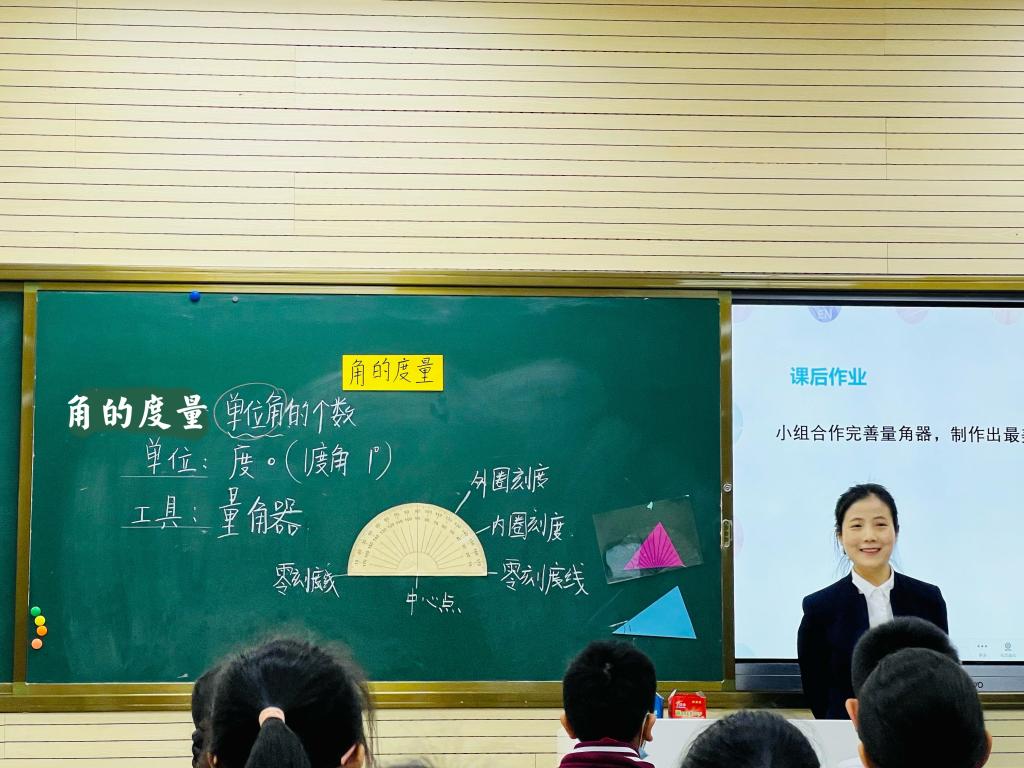 角的度量
角的度量 单位角的个数
单位：度 °（1度角 1°）
工具：量角器
外圈刻度
内圈刻度
零刻度线
零刻度线
中心点
EN
课后作业
小组合作完善量角器，制作出最